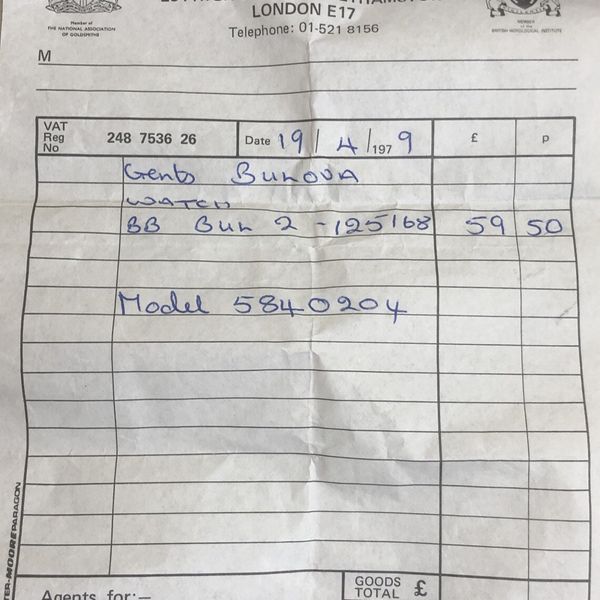 LONDON E17
Telephone: 01-521 8156
Member of
THE NATIONAL ASSOCIATION
OF GOLDSMITHS
MEMBER
of the
BRITISH HOROLOGICAL INSTITUTE
M
VAT Reg No 248 7536 26 Date 19/4/1979 £ p
Gents Bulova
WATCH
BB Bul 2 -125168 59 50
Model 5840204
MOORE PARAGON
Agents for:— GOODS TOTAL £